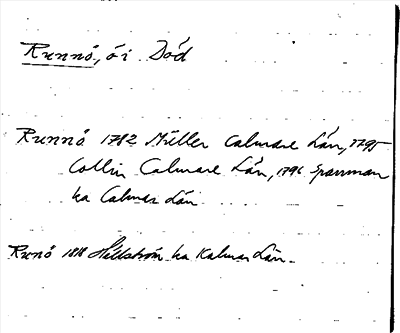 Runnö, ö i Död
Runnö 1782 Müller Calmare Län, 1795
Collin Calmare Län, 1796 Sparrman
ka Calmar Län
Runö 1818 Hällström ka Kalmar Län.